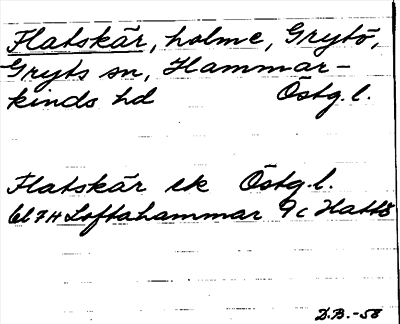 Flatskär, holme, Grytö,
Gryts sn, Hammar-
kinds hd Östg. l.
Flatskär ek Östg. l.
bl 7H Loftahammar 9c Hattö
D.B.-58